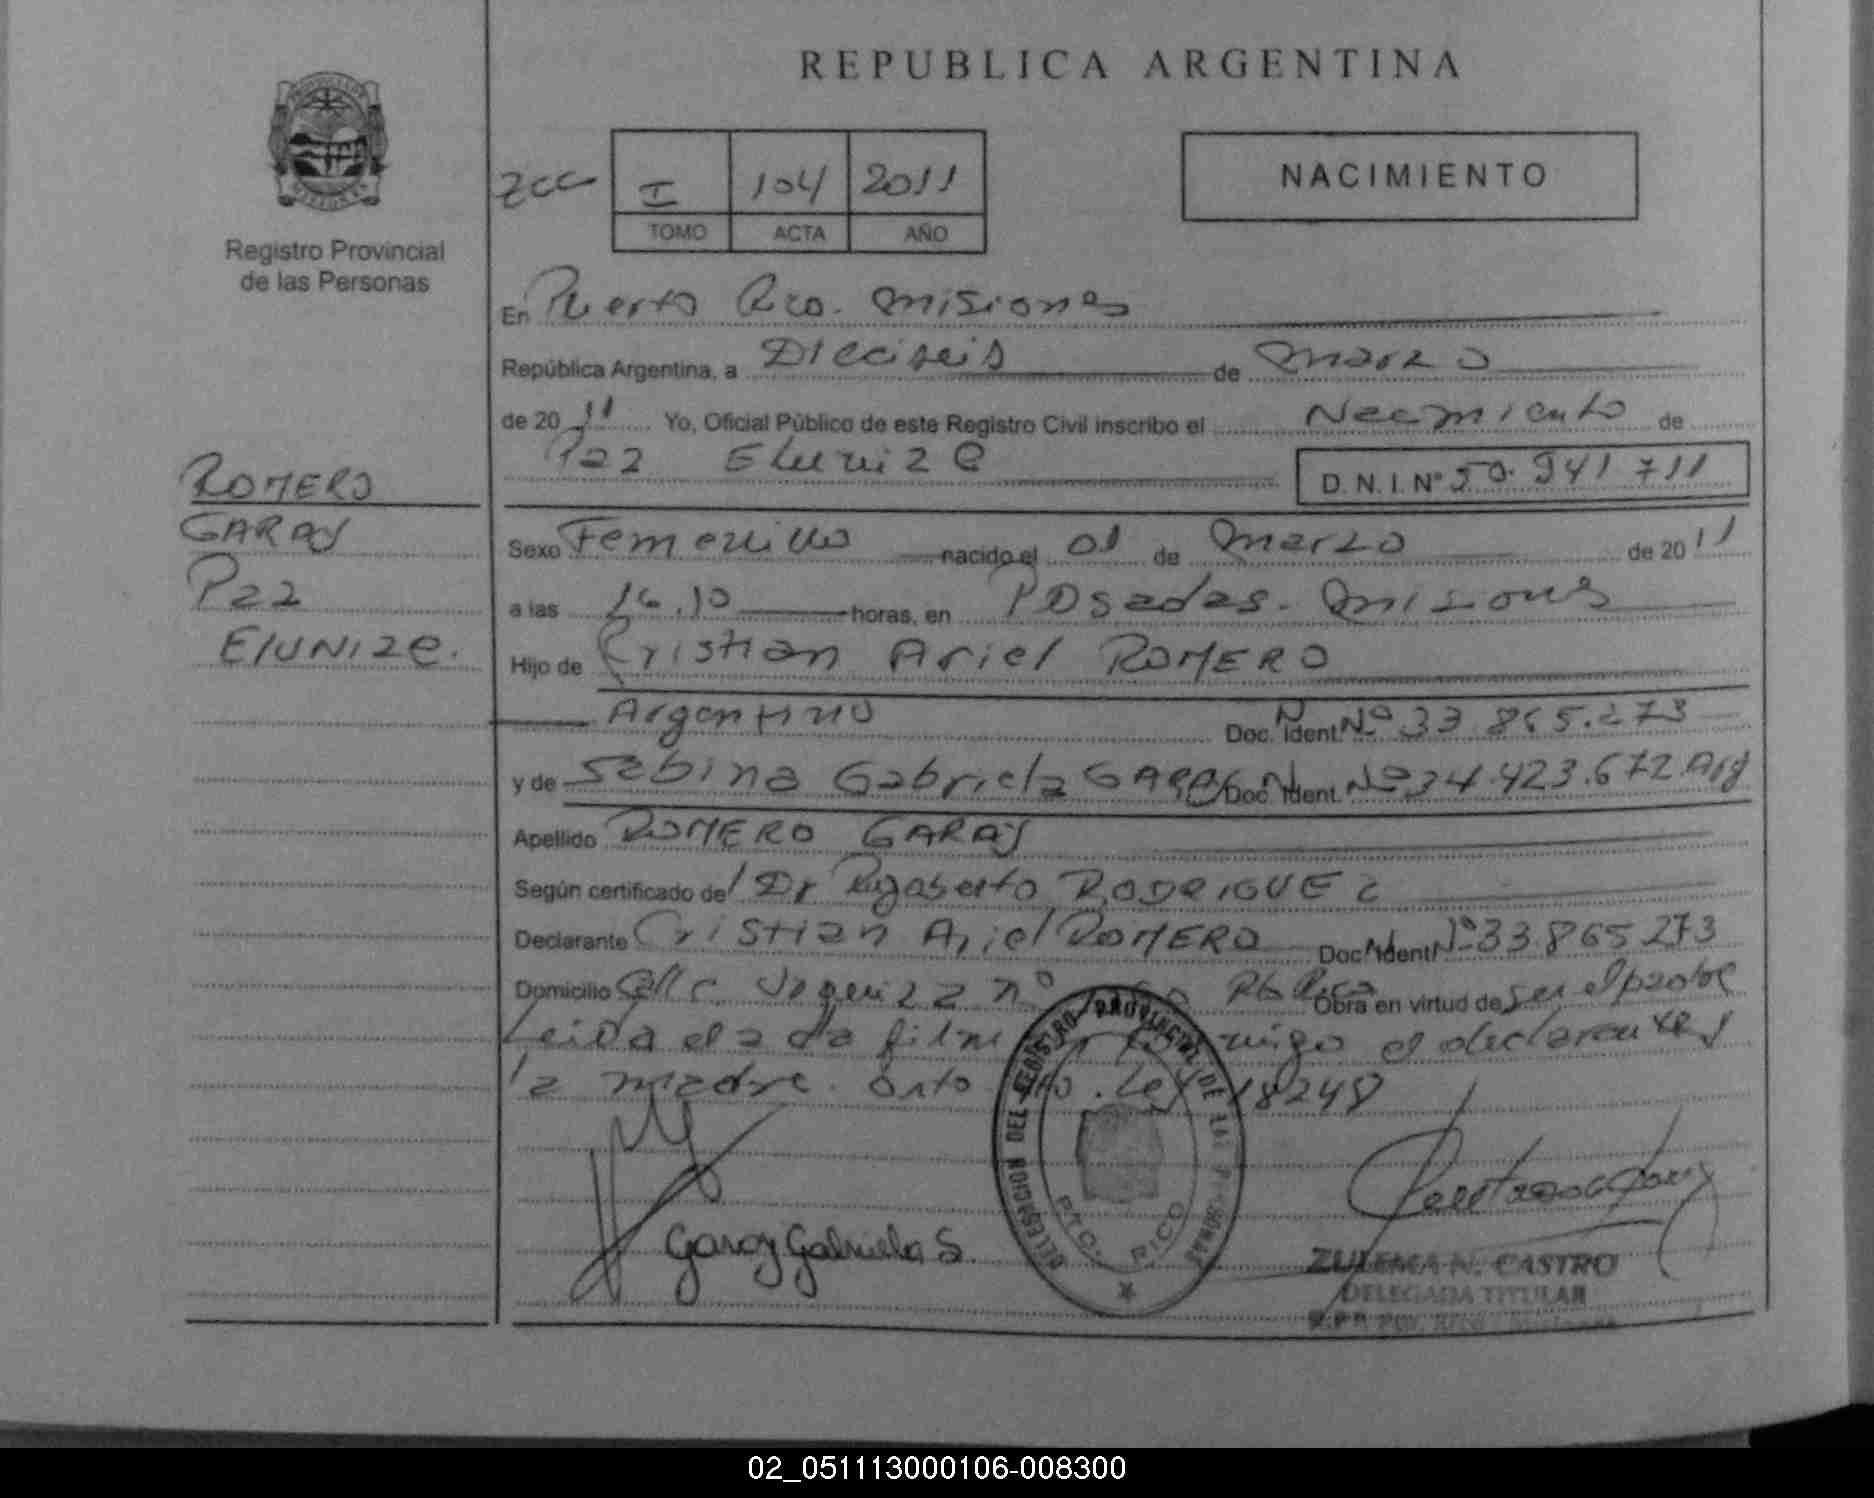 REPUBLICA ARGENTINA
Registro Provincial
de las Personas
I 104 2011
TOMO ACTA AÑO
NACIMIENTO
En Puerto Rico. Misiones
República Argentina, a Dieciseis de Marzo
de 20 11 Yo, Oficial Público de este Registro Civil inscribo el Nacimiento de
Paz Elunize D. N. I. Nº 50.941 711
ROMERO
GARAY
Paz
Elunize.
Sexo Femenino nacido el 01 de Marzo de 20 11
a las 16.10 horas, en Posadas. Misiones
Hijo de Cristian Ariel ROMERO
Argentino Doc. Ident. Nº 33.865.273
y de Sabina Gabriela GARAY Doc. Ident. Nº 34.423.672 Arg
Apellido ROMERO GARAY
Según certificado del Dr Rigoberto RODRIGUEZ
Declarante Cristian Ariel ROMERO Doc. Ident. Nº 33.865 273
Domicilio Calle nº Pto Rico Obra en virtud de ser el padre
Leida el acta el declarante y
la madre. Ley 18248
DELEGACION DEL REGISTRO PROVINCIAL DE LAS PERSONAS
PTO. RICO
Garay Gabriela S.
ZULEMA N. CASTRO
DELEGADA TITULAR
02_051113000106-008300